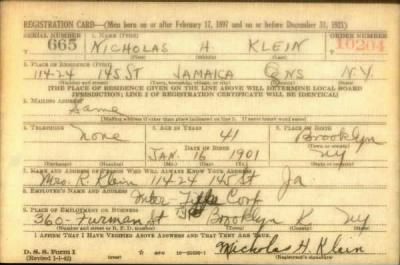 REGISTRATION CARD—(Men born on or after February 17, 1897 and on or before December 31, 1921)
SERIAL NUMBER 1. NAME (Print) ORDER NUMBER
665 NICHOLAS H KLEIN 10204
(First) (Middle) (Last)
2. PLACE OF RESIDENCE (Print)
114-24 145 ST JAMAICA QNS N.Y.
(Number and street) (Town, township, village, or city) (County) (State)
[THE PLACE OF RESIDENCE GIVEN ON THE LINE ABOVE WILL DETERMINE LOCAL BOARD
JURISDICTION; LINE 2 OF REGISTRATION CERTIFICATE WILL BE IDENTICAL]
3. MAILING ADDRESS
Same
[Mailing address if other than place indicated on line 2. If same insert word same]
4. TELEPHONE 5. AGE IN YEARS 6. PLACE OF BIRTH
None 41 Brooklyn
DATE OF BIRTH (Town or county)
JAN. 16 1901 NY
(Exchange) (Number) (Mo.) (Day) (Yr.) (State or country)
7. NAME AND ADDRESS OF PERSON WHO WILL ALWAYS KNOW YOUR ADDRESS
Mrs. R. Klein 114-24 145 St Ja
8. EMPLOYER'S NAME AND ADDRESS
Corp
9. PLACE OF EMPLOYMENT OR BUSINESS
360- Furman St Brooklyn K NY
(Number and street or R. F. D. number) (Town) (County) (State)
I AFFIRM THAT I HAVE VERIFIED ABOVE ANSWERS AND THAT THEY ARE TRUE.
D. S. S. Form 1
(Revised 1-1-42) (over)
Nicholas H. Klein